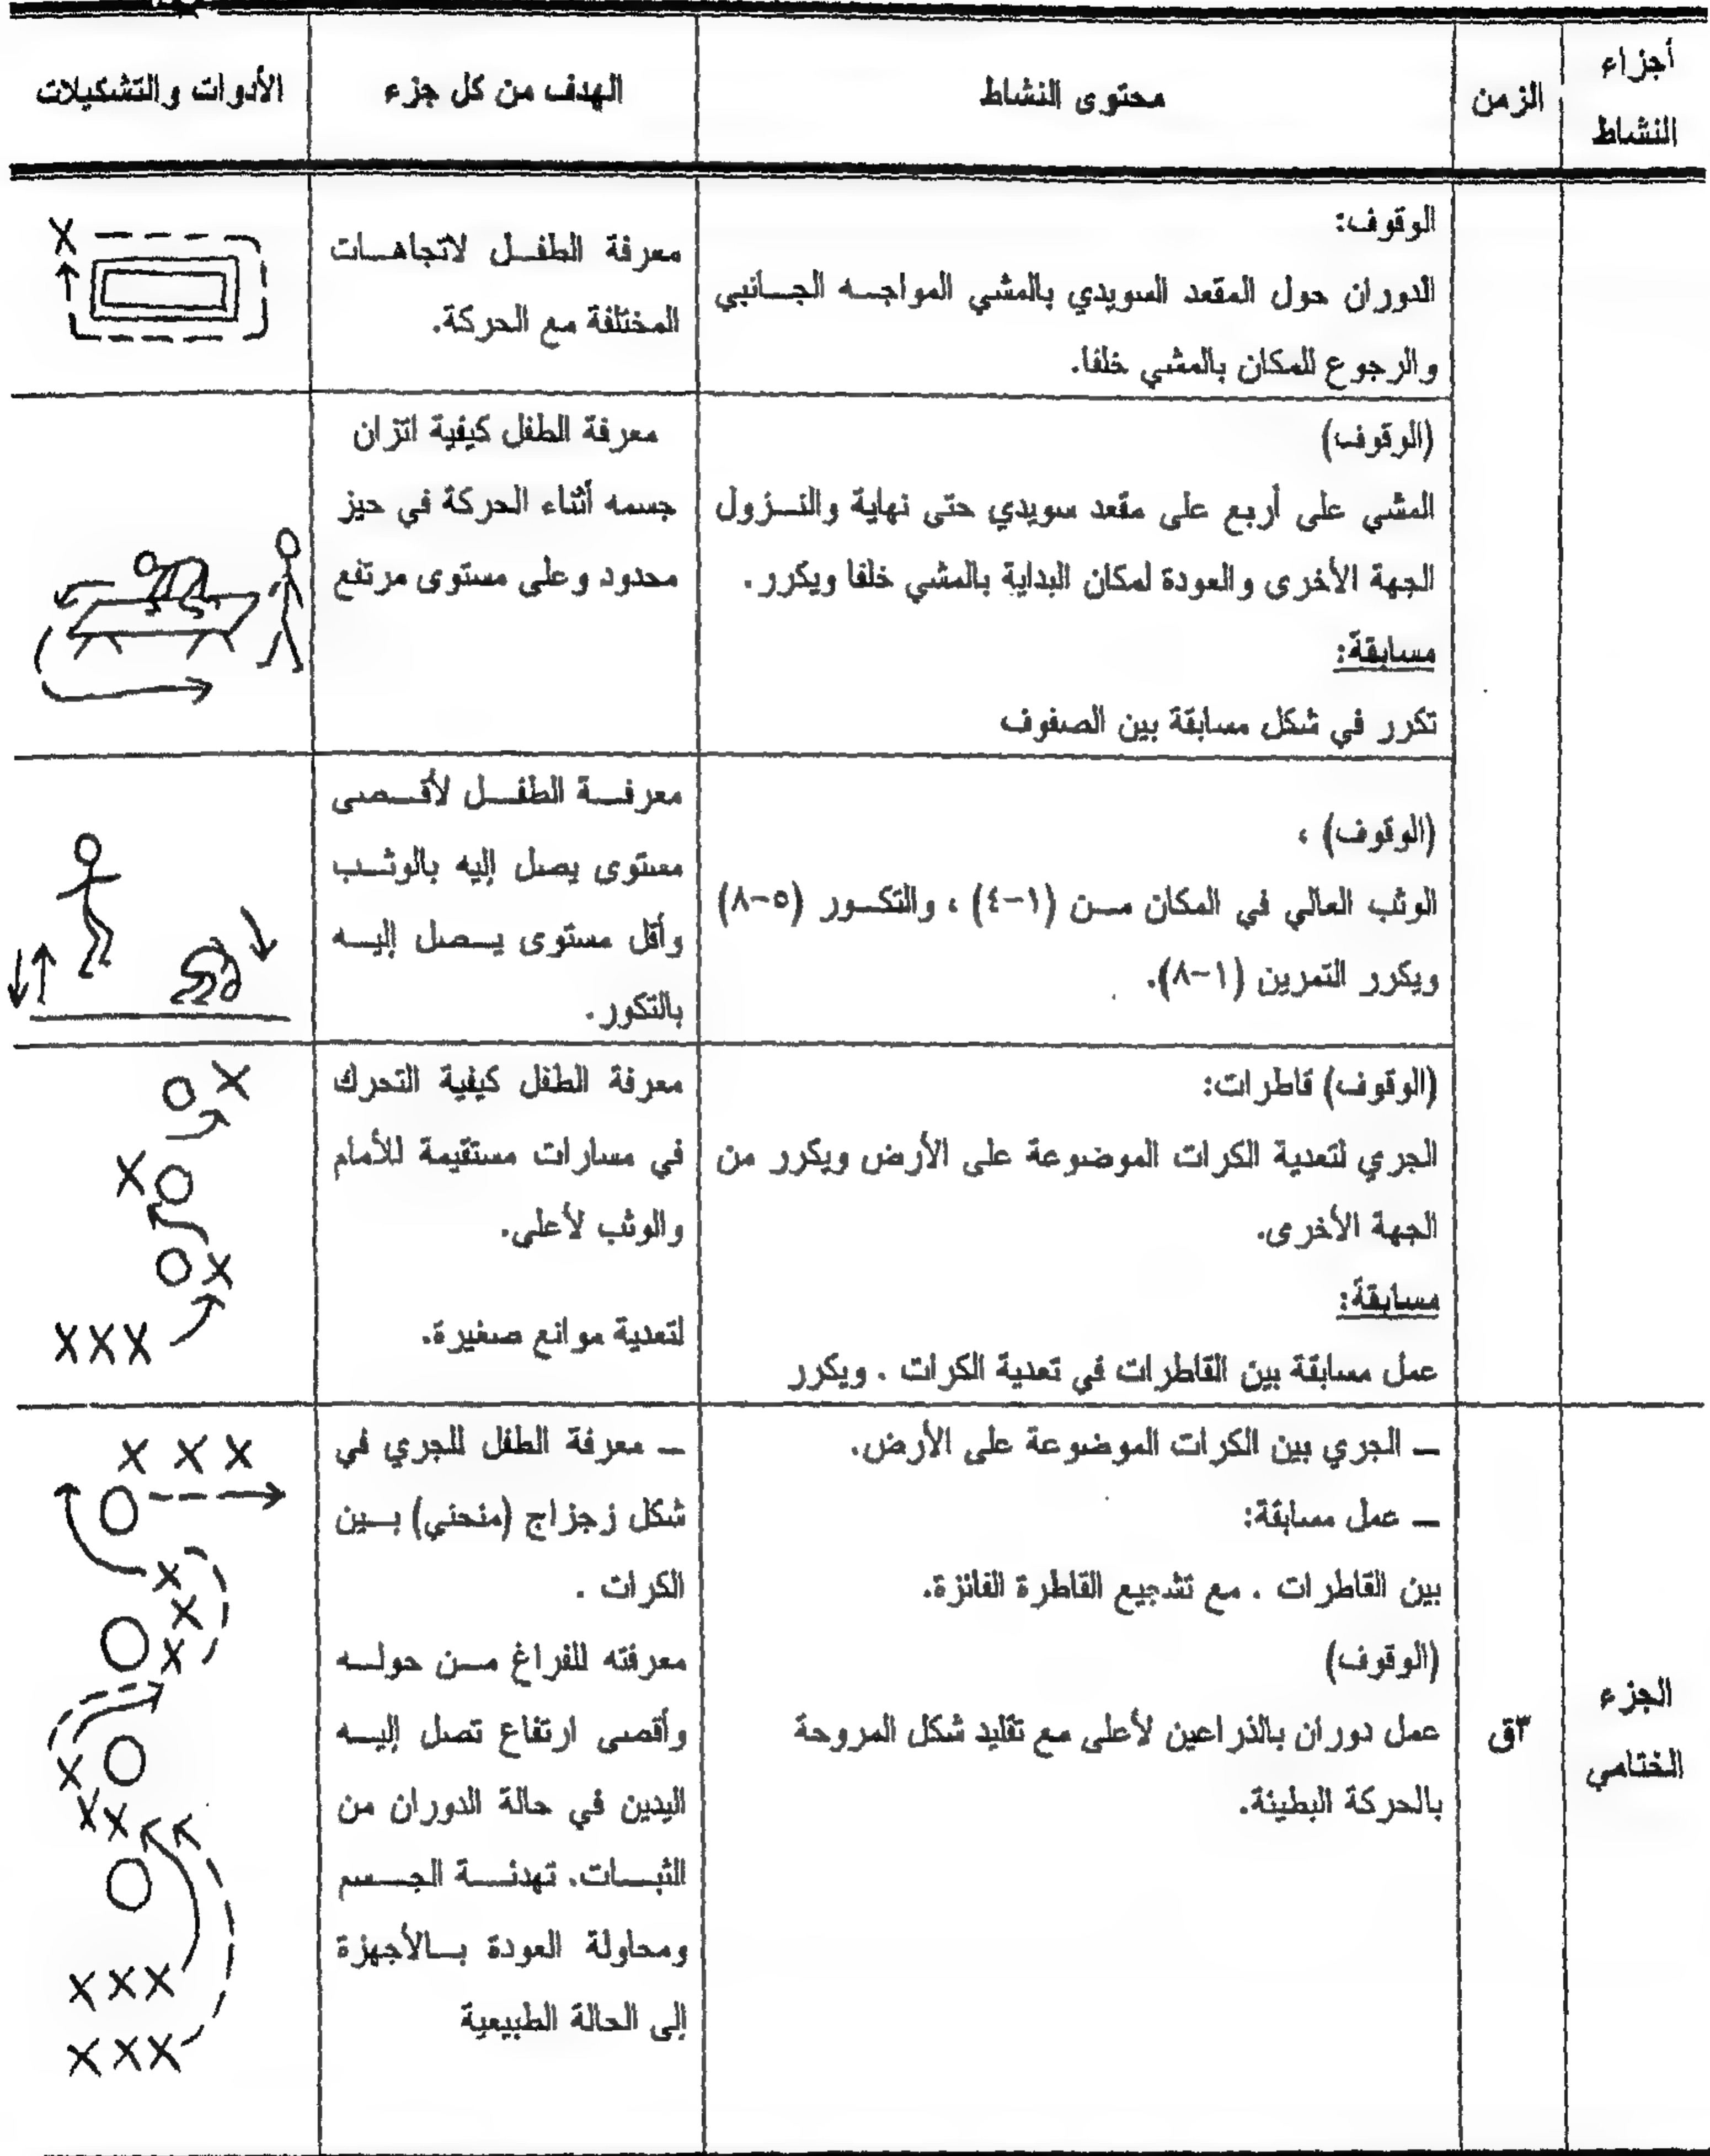 أجزاء النشاط
الزمن
محتوى النشاط
الهدف من كل جزء
الأدوات والتشكيلات
الوقوف:
الدوران حول المقعد السويدي بالمشي المواجه الجانبي
والرجوع للمكان بالمشي خلفا.
معرفة الطفل لاتجاهات
المختلفة مع الحركة.
X
(الوقوف)
المشي على أربع على مقعد سويدي حتى نهاية والنزول
الجهة الأخرى والعودة لمكان البداية بالمشي خلفا ويكرر.
مسابقة:
تكرر في شكل مسابقة بين الصفوف
معرفة الطفل كيفية اتزان
جسمه أثناء الحركة في حيز
محدود وعلى مستوى مرتفع
(الوقوف) ،
الوثب العالي في المكان من (١-٤) ، والتكور (٥-٨)
ويكرر التمرين (١-٨).
معرفة الطفل لأقصى
مستوى يصل إليه بالوثب
وأقل مستوى يصل إليه
بالتكور.
(الوقوف) قاطرات:
الجري لتعدية الكرات الموضوعة على الأرض ويكرر من
الجهة الأخرى.
مسابقة:
عمل مسابقة بين القاطرات في تعدية الكرات . ويكرر
معرفة الطفل كيفية التحرك
في مسارات مستقيمة للأمام
والوثب لأعلى.
لتعدية موانع صغيرة.
X
X
X
XXX
الجزء
الختامي
٣ق
ــ الجري بين الكرات الموضوعة على الأرض.
ــ عمل مسابقة:
بين القاطرات . مع تشجيع القاطرة الفائزة.
(الوقوف)
عمل دوران بالذراعين لأعلى مع تقليد شكل المروحة
بالحركة البطيئة.
ــ معرفة الطفل للجري في
شكل زجزاج (منحني) بين
الكرات .
معرفته للفراغ من حوله
وأقصى ارتفاع تصل إليه
اليدين في حالة الدوران من
الثبات. تهدئة الجسم
ومحاولة العودة بالأجهزة
إلى الحالة الطبيعية
X X X
X
X
X
X
XX
XXX
XXX